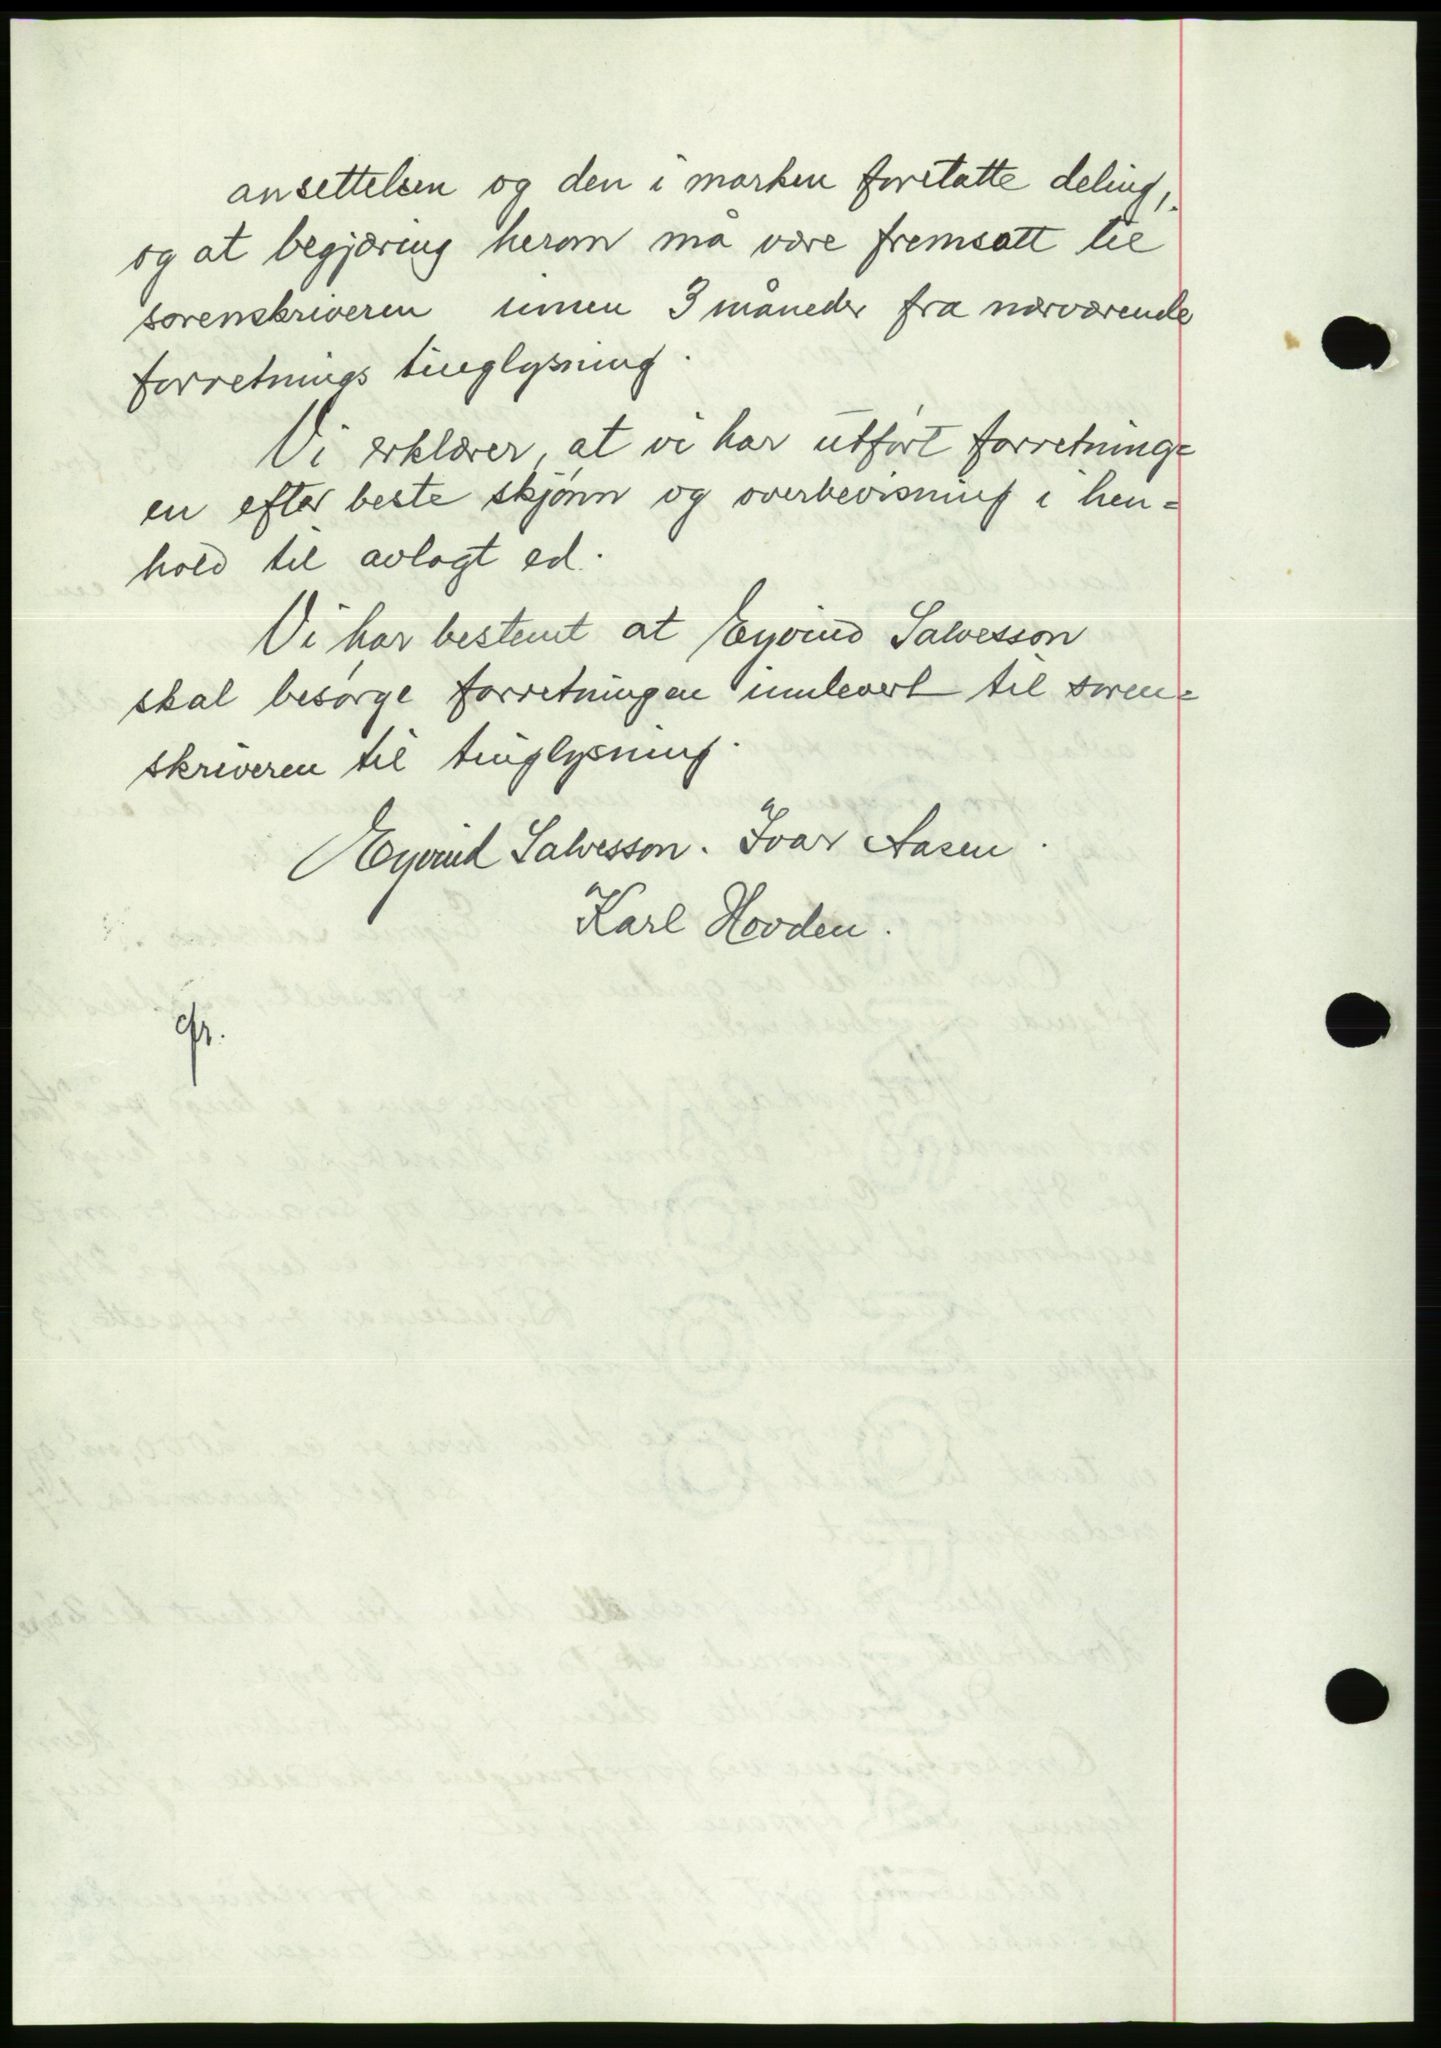 ansettelsen og den i marken foretatte deling,
og at begjæring herom må være fremsatt til
sorenskriveren innen 3 måneder fra nærværende
forretnings tinglysning.
Vi erklærer, at vi har utført forretning=
en efter beste skjønn og overbevisning i hen=
hold til avlagt ed.
Vi har bestemt at Eyvind Salvesson
skal besørge forretningen innlevert til soren=
skriveren til tinglysning.
Eyvind Salvesson. Ivar Aasen.
Karl Hovden.